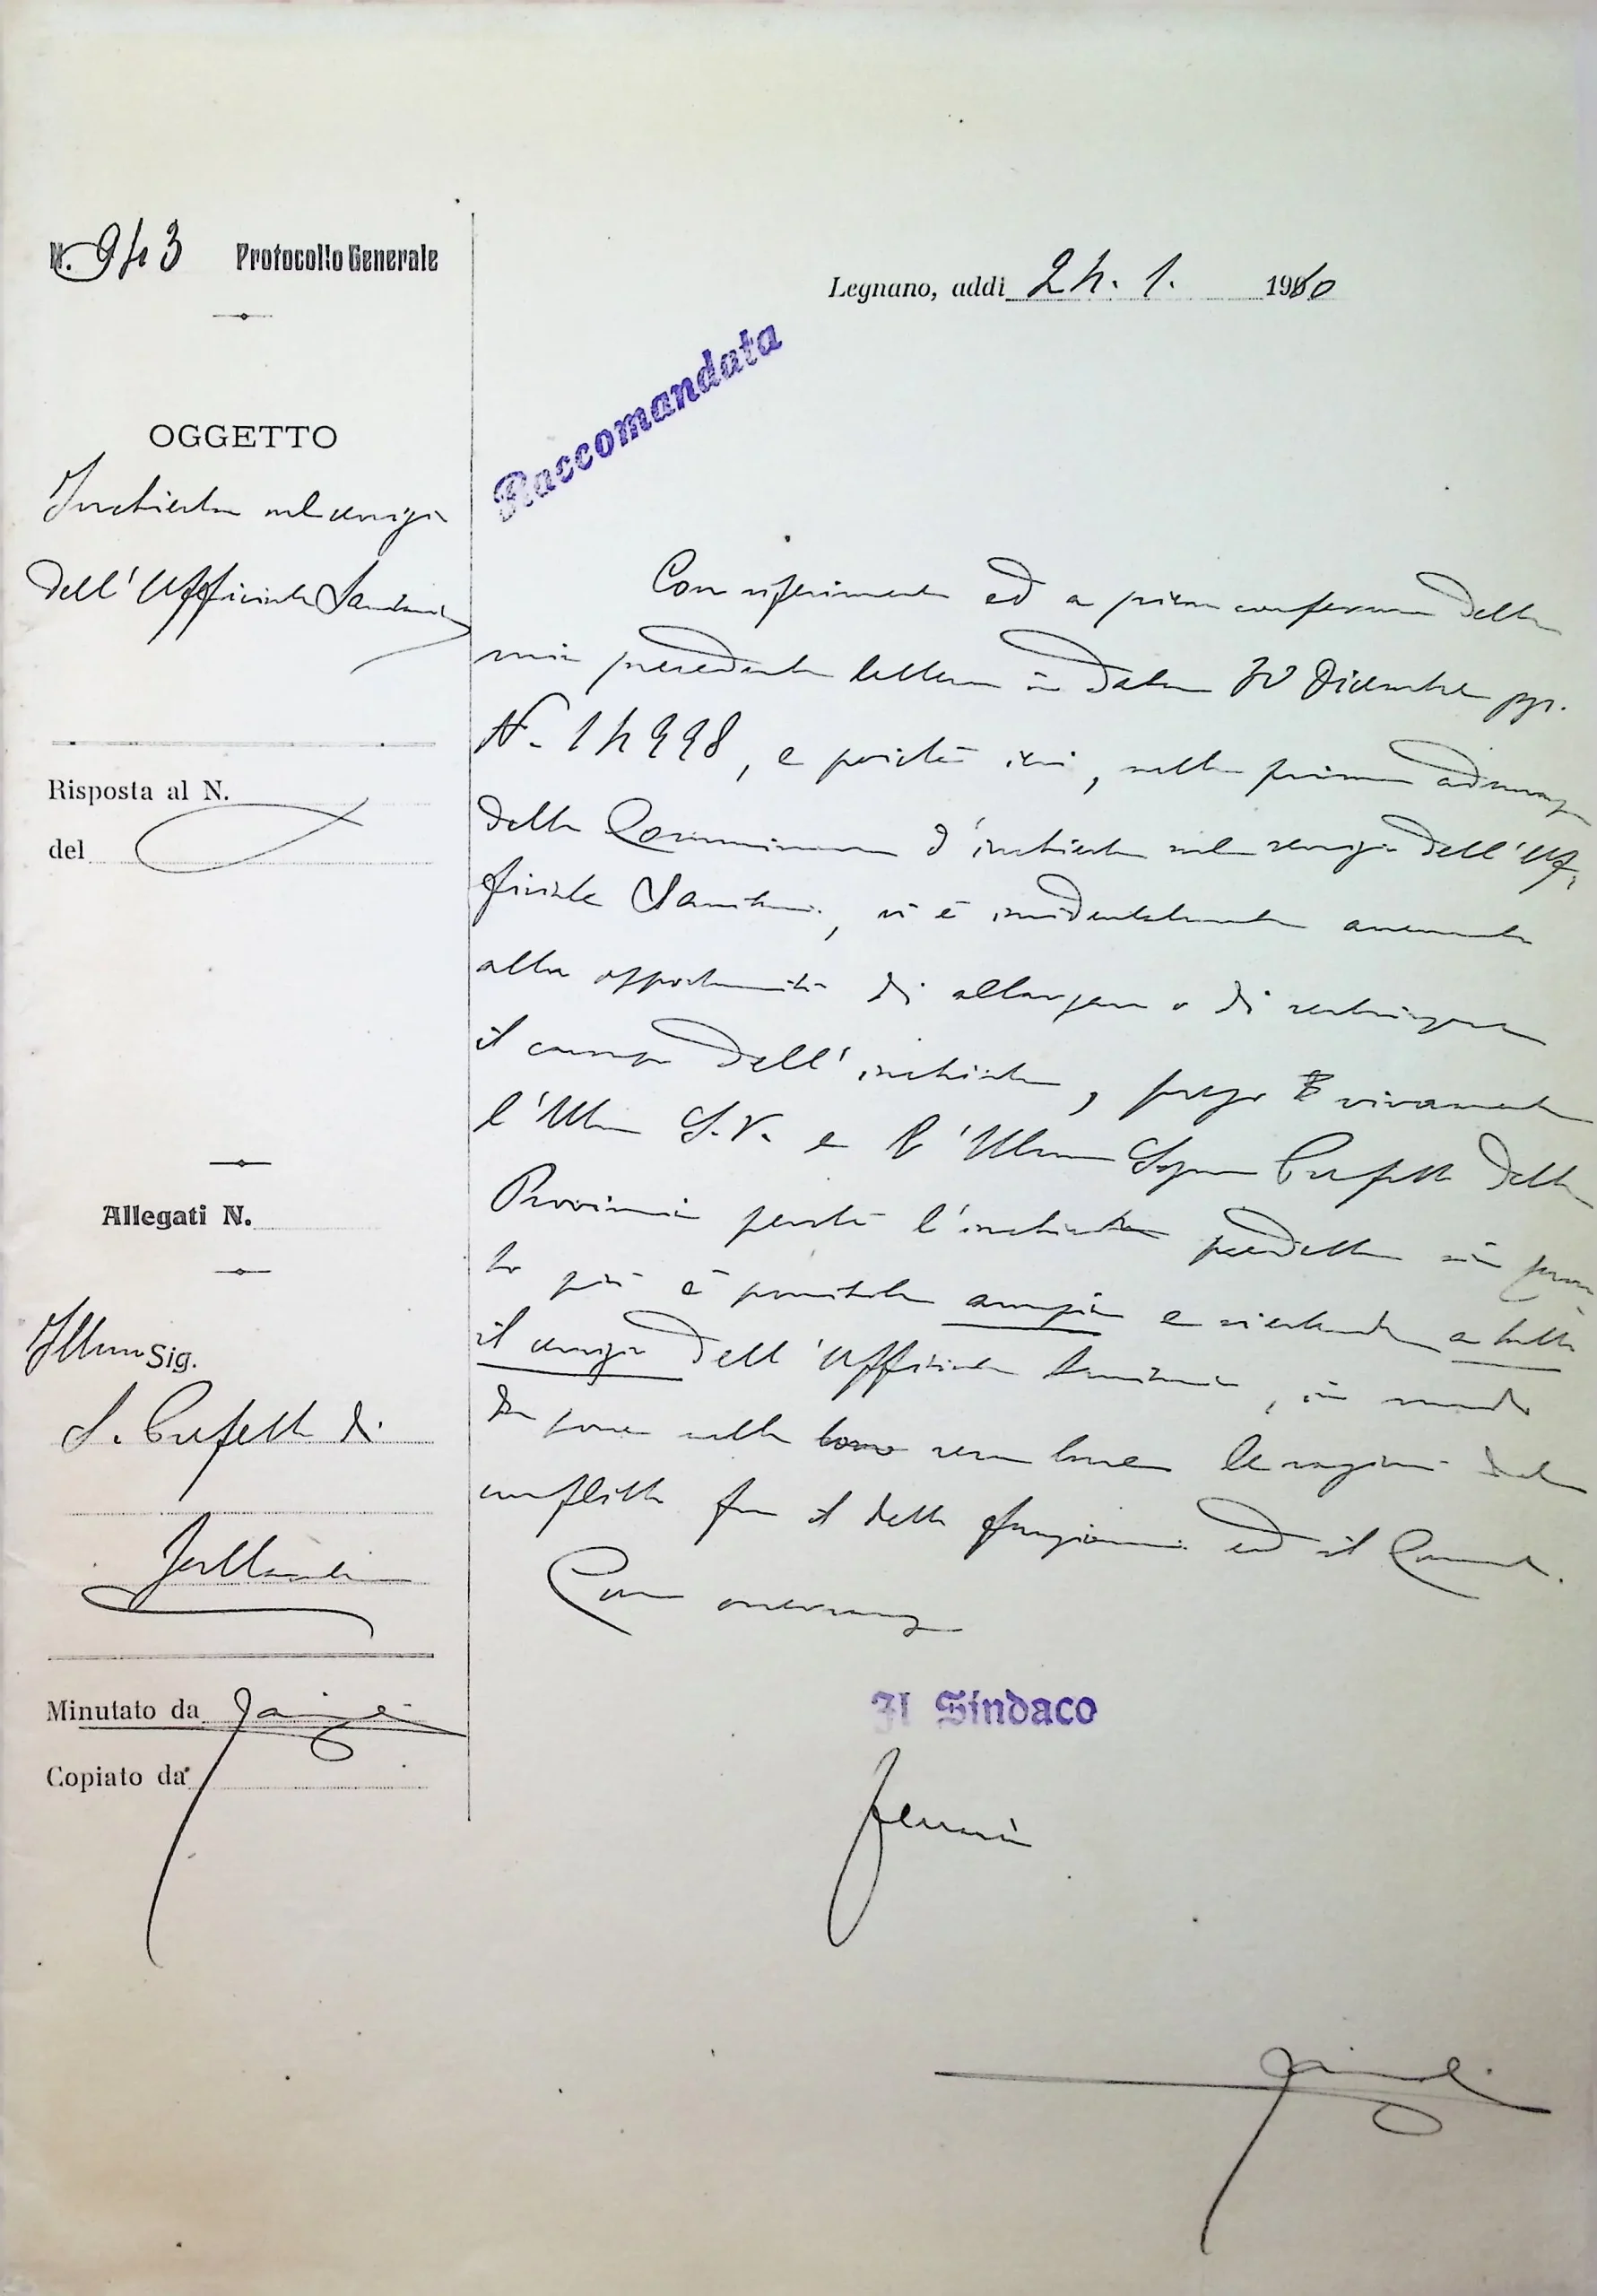 N. 943 Protocollo Generale
Legnano, addì 24. 1. 1910
Raccomandata
OGGETTO
Inchiesta sul servizio
dell'Ufficiale Sanitario
Risposta al N.
del
Allegati N.
Illmo Sig.
S. Prefetto di
Gallarate
Minutato da
Copiato da
Con riferimento ed a piena conferma della
mia precedente lettera in data 30 Dicembre pp.
N. 14998, e poichè ieri, nella prima adunanza
della Commissione d'inchiesta sul servizio dell'Uf-
ficiale Sanitario, si è incidentalmente accennato
alla opportunità di allargare o di restringere
il campo dell'inchiesta, prego vivamente
l'Illma S.V. e l'Illmo Signor Prefetto della
Provincia perchè l'inchiesta predetta sia quan
to più è possibile ampia e si estenda a tutto
il servizio dell'Ufficiale Sanitario, in modo
da porre nella loro vera luce le ragioni del
conflitto fra il detto funzionario ed il Comune.
Con osservanza
Il Sindaco